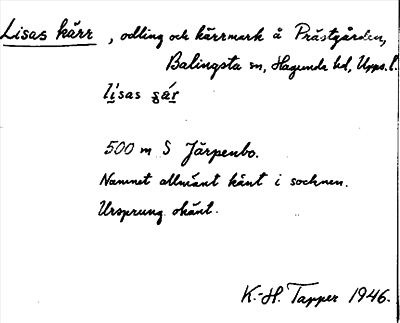 Lisas kärr, odling och kärrmark å Prästgården,
Balingsta sn, Hagunda hd, Upps. l.
lìsas şár
500 m S Järpenbo.
Namnet allmänt känt i socknen.
Ursprung okänt.
K.-H. Tapper 1946.